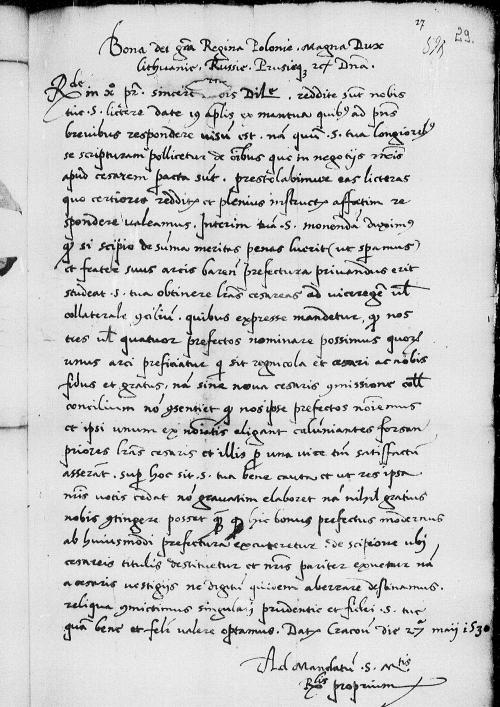 27
29
Bona dei gra Regina Polonie. Magna Dux
Lithuanie. Russie. Prusieq3 etc Dna.
Rde in xo pr. sincere nois Dile. reddite sut nobis
tue .S. lictere date 19 aplis ex mantua quibus ad pns
brevibus respondere visu est. na quu .S. tua longiorib
se scripturam pollicetur de oibus que in negotijs nris
apud cesarem pacta sut. prestolabimur eas licteras
quo certiores redditi et plenius instructi affatim re
spondere valeamus. Interim tua .S. monenda duximus
q si scipio de suma meritas penas luerit (ut speramus)
et frater suus arcis baren prefectura privandus erit
studeat .S. tua obtinere lras cesareas ad viceregem vl
collaterale gsiliu. quibus expresse mandetur, q nos
tres vl quatuor prefectos nominare possimus quoru
unus arci preficiatur q sit regnicola et cesari ac nobis
fidus et gratus, na sine nova cesaris gmissione coll
concilium no gsentiet q nos ipse prefectos noiemus
et ipsi unum ex noiatis eligant calumiantes forsan
priores lras cesaris et illis p una vice tm satisfactu
asserat. sup hoc sit .S. tua bene cauta et ut res ipsa
nris votis cedat no gravatim elaboret na nihil gratius
nobis gtingere posset q q hic bonus prefectus modernus
ab huiusmodi prefectura excuteretur. de scipione ubi
cesareis titulis destituetur et nris pariter exuetur na
a cesaris vestigijs ne digitu quidem aberrare destinamus.
reliqua gmictimus singulari prudentie et fidei .S. tue
qua bene et feli valere optamus. Dat Cracou die 27 maij 1530
Ad Mandatu .S. Mtis
Rlis proprium